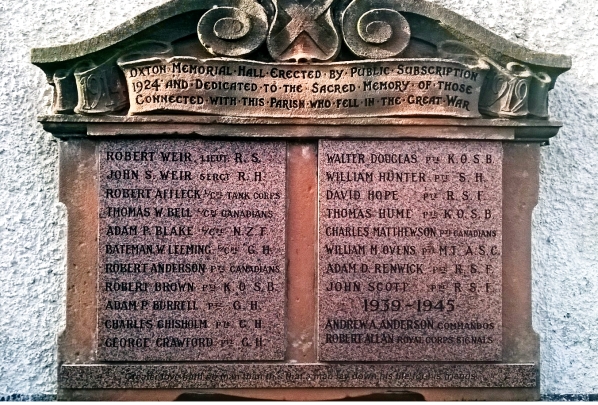 OXTON·MEMORIAL·HALL·ERECTED·BY·PUBLIC·SUBSCRIPTION
1924·AND·DEDICATED·TO·THE·SACRED·MEMORY·OF·THOSE
CONNECTED·WITH·THIS·PARISH·WHO·FELL·IN·THE·GREAT·WAR
1914
1919
ROBERT WEIR, LIEUT R.S.
JOHN S. WEIR SERGT R.H.
ROBERT AFFLECK L/CPL TANK CORPS
THOMAS W. BELL L/CPL CANADIANS
ADAM P. BLAKE L/CPL N.Z.F.
BATEMAN W. LEEMING L/CPL G.H.
ROBERT ANDERSON PTE CANADIANS
ROBERT BROWN PTE K.O.S.B.
ADAM P. BURRELL PTE G.H.
CHARLES CHISHOLM PTE G.H.
GEORGE CRAWFORD PTE G.H.
WALTER DOUGLAS PTE K.O.S.B.
WILLIAM HUNTER PTE S.H.
DAVID HOPE PTE R.S.F.
THOMAS HUME PTE K.O.S.B.
CHARLES MATTHEWSON PTE CANADIANS
WILLIAM M. OVENS PTE M.T. A.S.C.
ADAM D. RENWICK PTE R.S.F.
JOHN SCOTT PTE R.S.F.
1939-1945
ANDREW A. ANDERSON COMMANDOS
ROBERT ALLAN ROYAL CORPS SIGNALS
Greater love hath no man than this that a man lay down his life for his friends